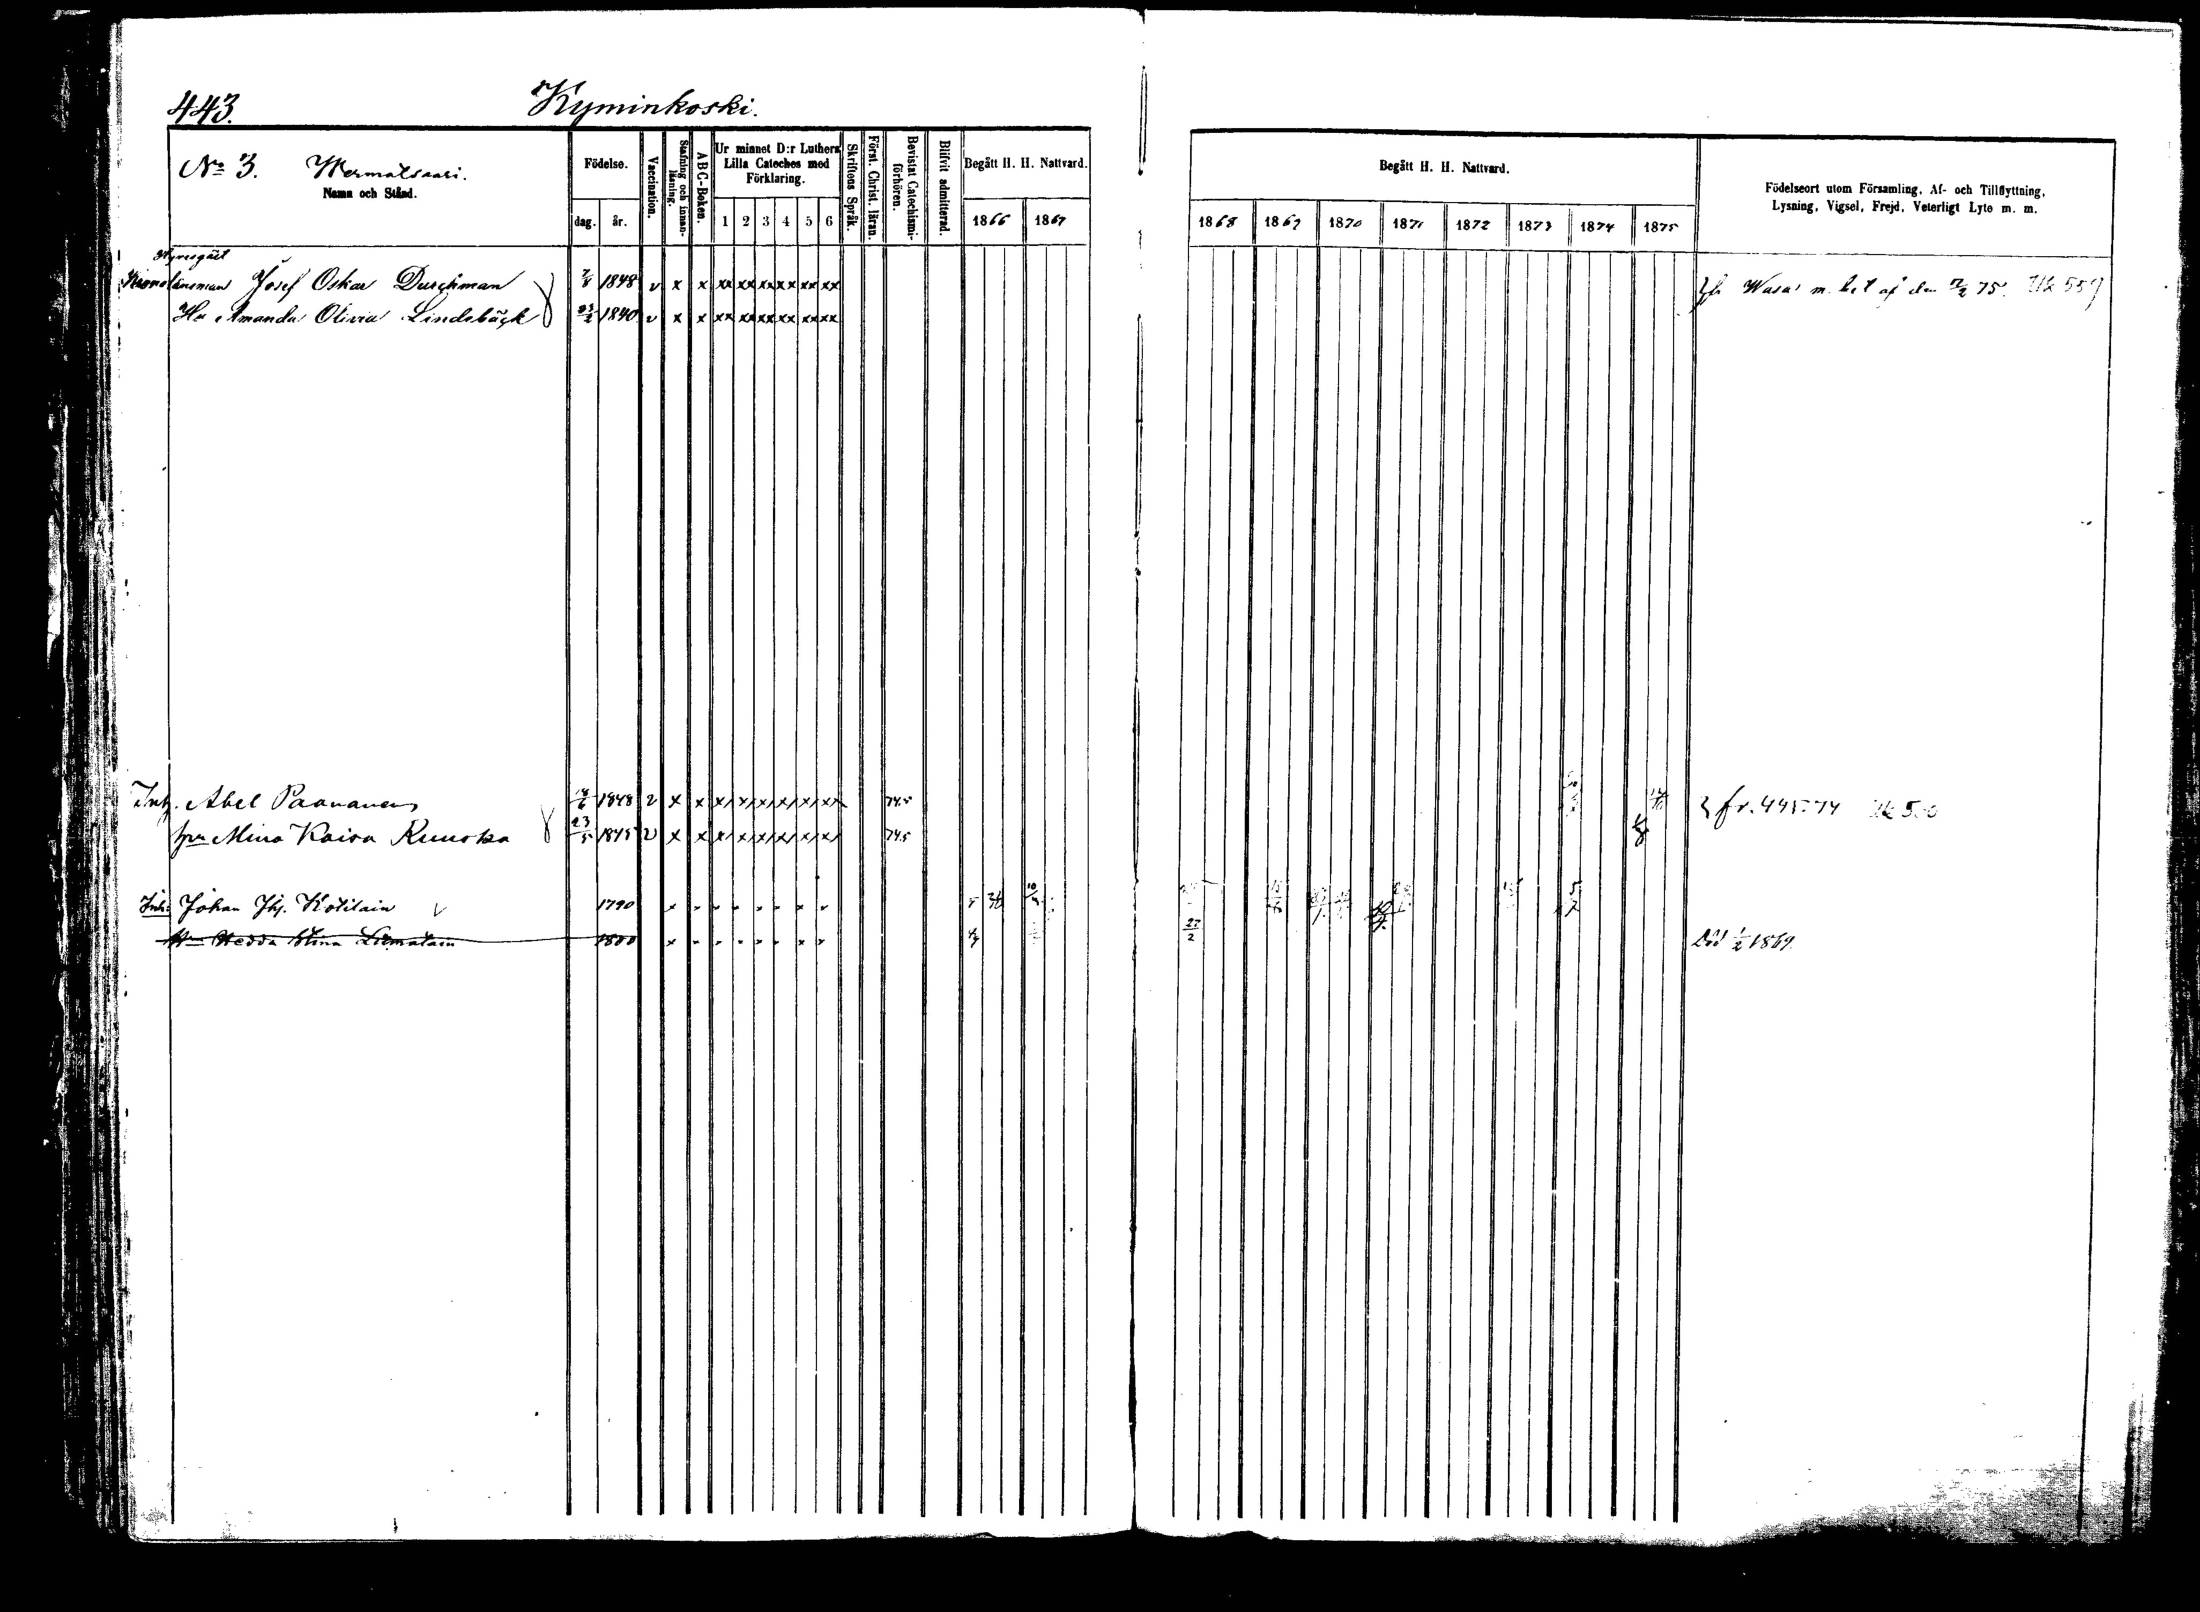 443.
Kyminkoski.
No 3. Hermatsaari.
Namn och Stånd.
Födelse.
dag. år.
Vaccination.
Stafning och innanläsning.
ABC-Boken.
Ur minnet D:r Luthers Lilla Cateches med Förklaring.
1 2 3 4 5 6
Skriftens Språk.
Först. Christ. läran.
Bevistat Catechismiförhören.
Blifvit admitterad.
Begått H. H. Nattvard.
1866 1867
Begått H. H. Nattvard.
1868 1869 1870 1871 1872 1873 1874 1875
Födelseort utom Församling, Af- och Tillflyttning,
Lysning, Vigsel, Frejd, Veterligt Lyte m. m.
Hyresgäst
Kronolänsman Josef Oskar Durchman 7/8 1848 v x x xx xx xx xx xx xx fr Wasa m. bet af den 75. Uk 559
Hu Amanda Olivia Lindebäck 1840 v x x xx xx xx xx xx xx
Inh. Abel Paananen 18/6 1848 v x x x/ x/ x/ x/ x/ xx 74.5 fr. 445. 74
hu Mina Kaisa Ruuska 23/5 1845 v x x x/ x/ x/ x/ x/ x/ 74.5
Inh: Johan Joh. Kotilain 1790
Hu Hedda Stina Liimatain 1800 27/2 Död 1/2 1869.